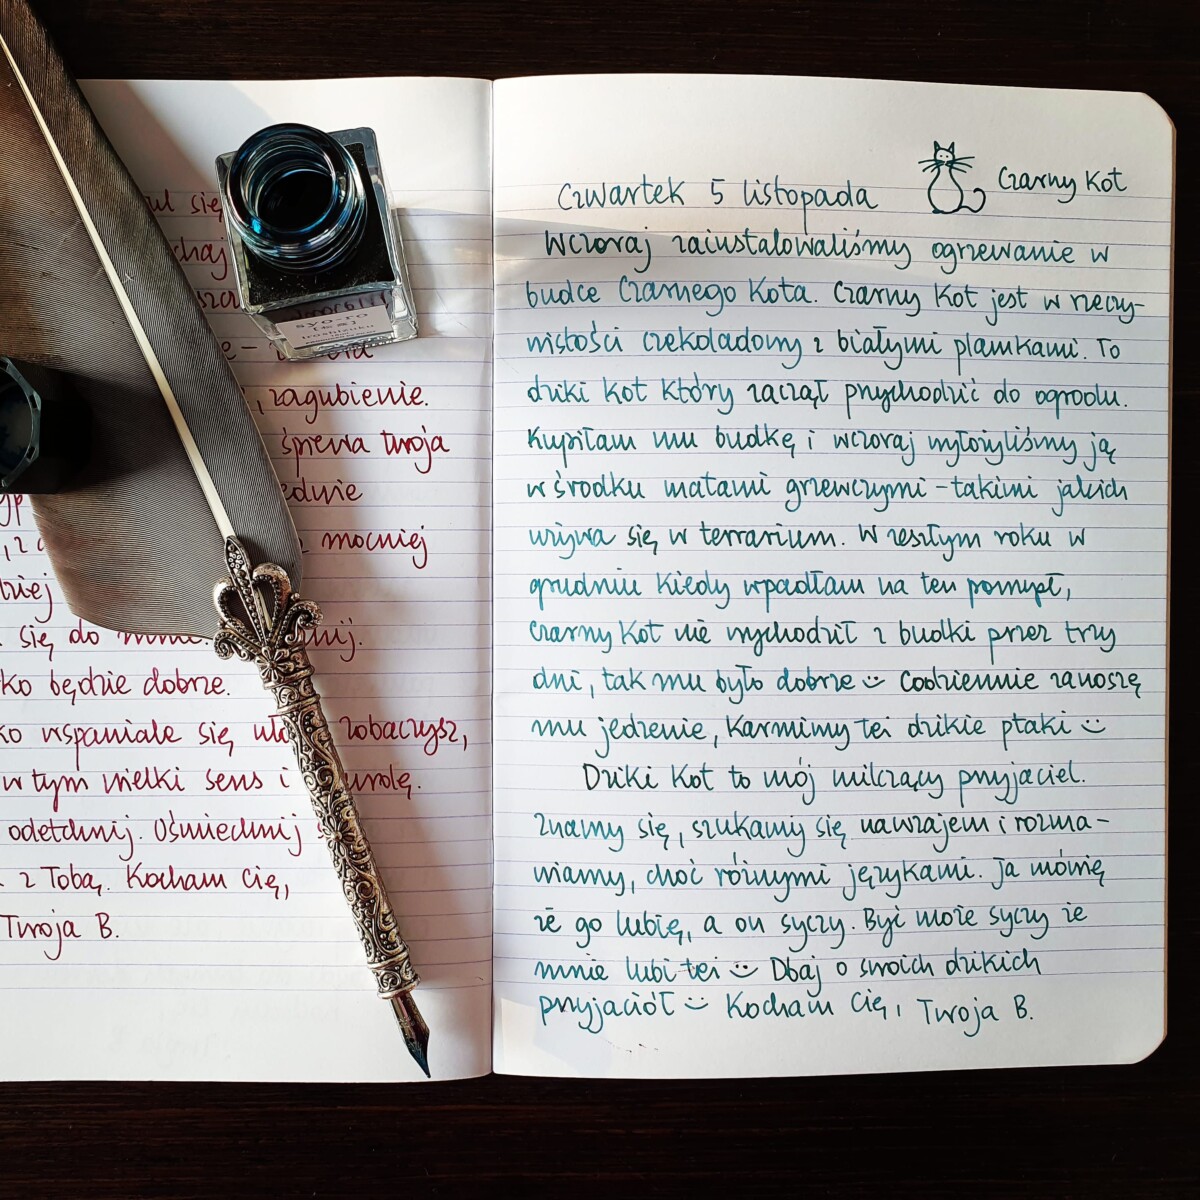 się
zagubienie.
śpiewa twoja
mocniej
się do
ko będzie dobrze.
ko wspaniale się zobaczysz,
w tym wielki sens i
odetchnij. Uśmiechnij
z Tobą. Kocham Cię,
Twoja B.
syo-ro
iroshizuku
Czwartek 5 listopada
Czarny Kot
Wczoraj zainstalowaliśmy ogrzewanie w
budce Czarnego Kota. Czarny Kot jest w rzeczy-
wistości czekoladowy z białymi plamkami. To
dziki kot który zaczął przychodzić do ogrodu.
Kupiłam mu budkę i wczoraj wyłożyliśmy ją
w środku matami grzewczymi - takimi jakich
używa się w terrarium. W zeszłym roku w
grudniu kiedy wpadłam na ten pomysł,
Czarny Kot nie wychodził z budki przez trzy
dni, tak mu było dobrze :) Codziennie zanoszę
mu jedzenie, karmimy też dzikie ptaki :)
Dziki Kot to mój milczący przyjaciel.
Znamy się, szukamy się nawzajem i rozma-
wiamy, choć różnymi językami. Ja mówię
że go lubię, a on syczy. Być może syczy że
mnie lubi też :) Dbaj o swoich dzikich
przyjaciół :) Kocham Cię, Twoja B.